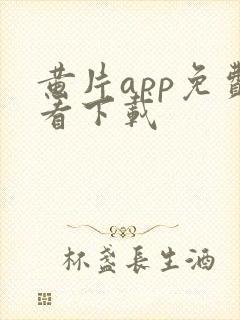 黄片app免费
看下载
杯盏长生酒